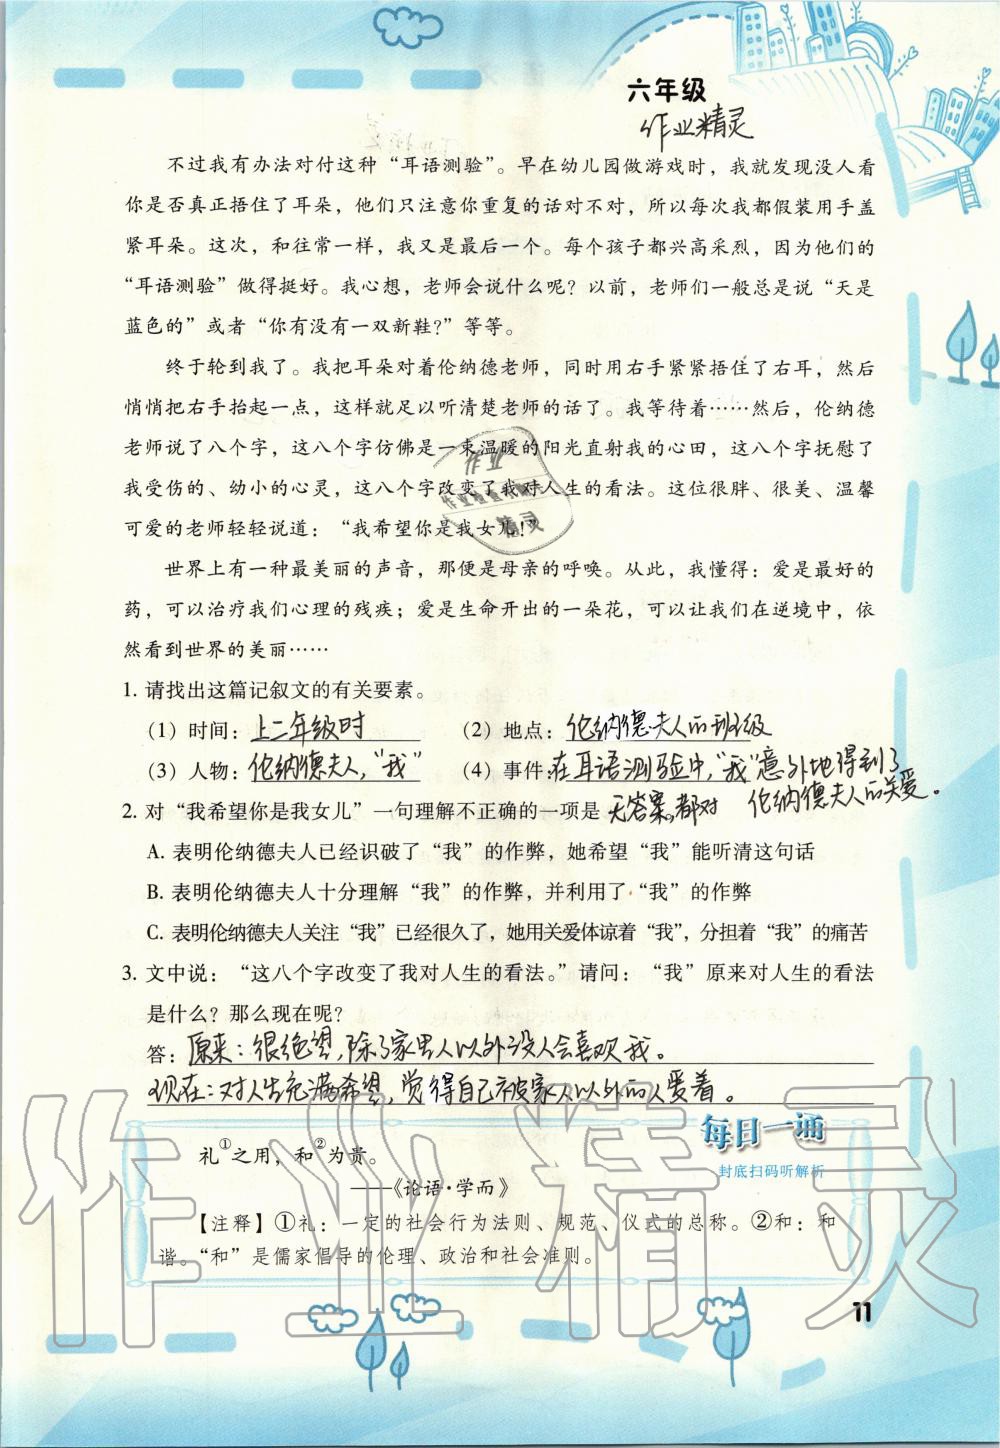 六年级
作业精灵
不过我有办法对付这种“耳语测验”。早在幼儿园做游戏时，我就发现没人看
你是否真正捂住了耳朵，他们只注意你重复的话对不对，所以每次我都假装用手盖
紧耳朵。这次，和往常一样，我又是最后一个。每个孩子都兴高采烈，因为他们的
“耳语测验”做得挺好。我心想，老师会说什么呢？以前，老师们一般总是说“天是
蓝色的”或者“你有没有一双新鞋?”等等。
终于轮到我了。我把耳朵对着伦纳德老师，同时用右手紧紧捂住了右耳，然后
悄悄把右手抬起一点，这样就足以听清楚老师的话了。我等待着……然后，伦纳德
老师说了八个字，这八个字仿佛是一束温暖的阳光直射我的心田，这八个字抚慰了
我受伤的、幼小的心灵，这八个字改变了我对人生的看法。这位很胖、很美、温馨
可爱的老师轻轻说道：“我希望你是我女儿!”
世界上有一种最美丽的声音，那便是母亲的呼唤。从此，我懂得：爱是最好的
药，可以治疗我们心理的残疾；爱是生命开出的一朵花，可以让我们在逆境中，依
然看到世界的美丽……
1. 请找出这篇记叙文的有关要素。
(1) 时间：上二年级时 (2) 地点：伦纳德夫人的班级
(3) 人物：伦纳德夫人，“我” (4) 事件：在耳语测验中，“我”意外地得到了
伦纳德夫人的关爱。
2. 对“我希望你是我女儿”一句理解不正确的一项是 无答案。都对
A. 表明伦纳德夫人已经识破了“我”的作弊，她希望“我”能听清这句话
B. 表明伦纳德夫人十分理解“我”的作弊，并利用了“我”的作弊
C. 表明伦纳德夫人关注“我”已经很久了，她用关爱体谅着“我”，分担着“我”的痛苦
3. 文中说：“这八个字改变了我对人生的看法。”请问：“我”原来对人生的看法
是什么？那么现在呢？
答：原来：很绝望，除了家里人以外没人会喜欢我。
现在：对人生充满希望，觉得自己被家人以外的人爱着。
每日一诵
封底扫码听解析
礼①之用，和②为贵。
——《论语·学而》
【注释】①礼：一定的社会行为法则、规范、仪式的总称。②和：和
谐。“和”是儒家倡导的伦理、政治和社会准则。
11
作业精灵